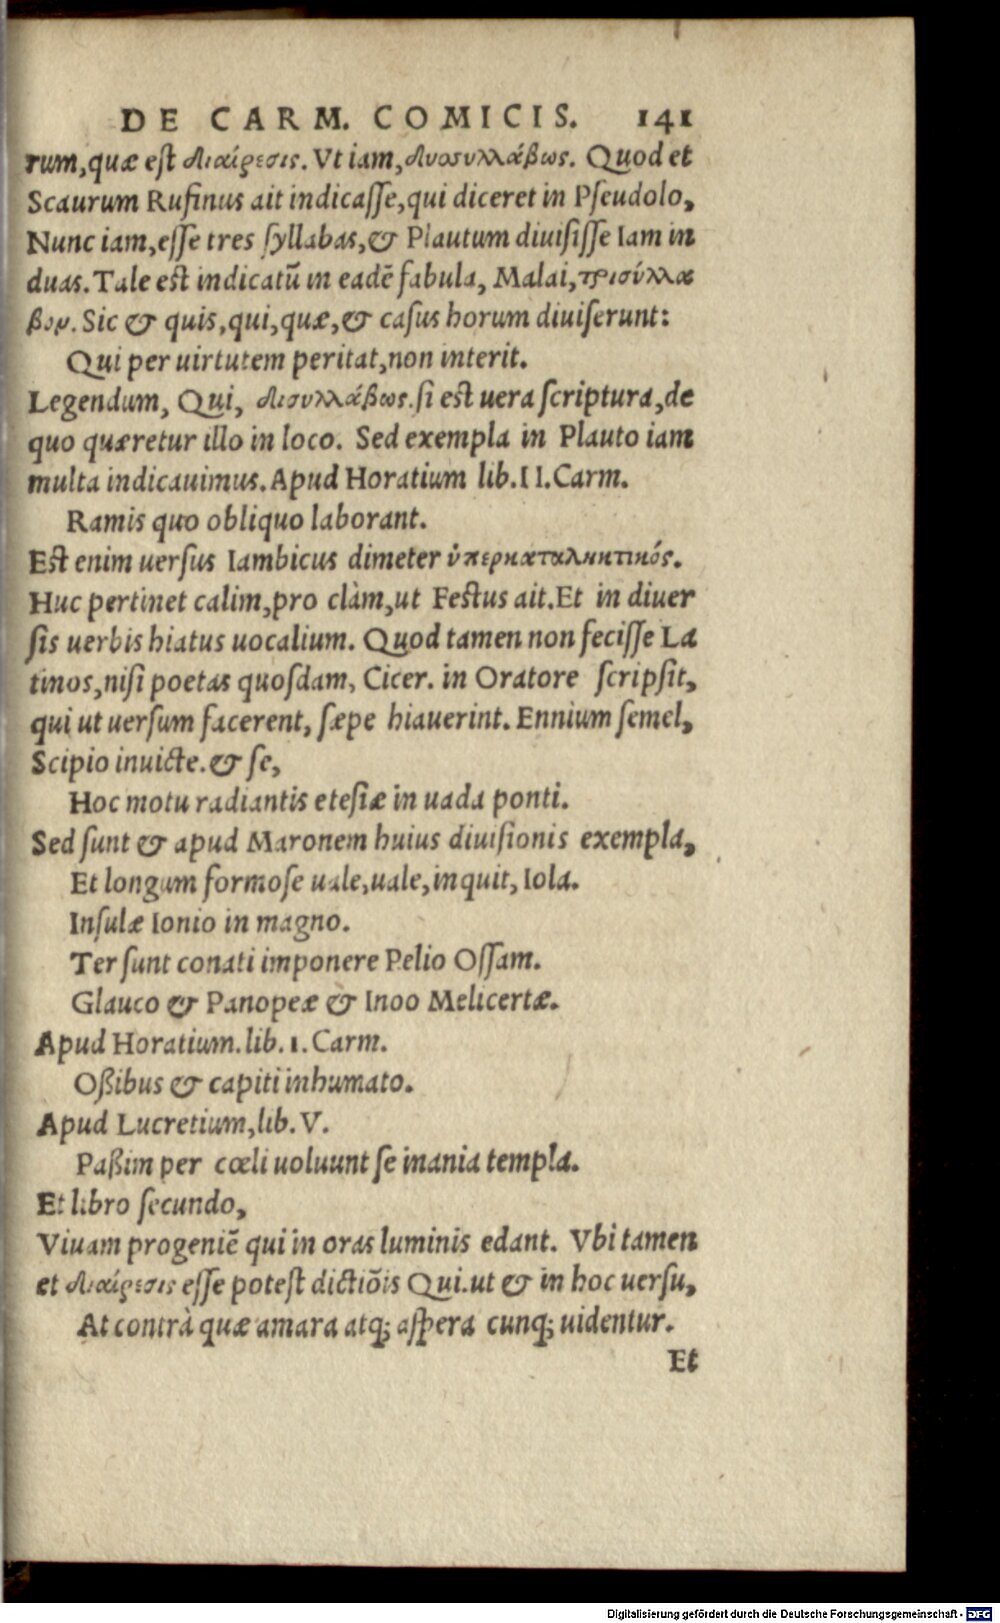 DE CARM. COMICIS. 141
rum, quæ est διαίρεσις. Vt iam, δυοσυλλάβως. Quod et
Scaurum Rufinus ait indicasse, qui diceret in Pseudolo,
Nunc iam, esse tres syllabas, & Plautum diuisisse Iam in
duas. Tale est indicatũ in eadẽ fabula, Malai, τρισύλλα
βον. Sic & quis, qui, quæ, & casus horum diuiserunt:
Qui per uirtutem peritat, non interit.
Legendum, Qui, δισυλλάβως. si est uera scriptura, de
quo quæretur illo in loco. Sed exempla in Plauto iam
multa indicauimus. Apud Horatium lib. II. Carm.
Ramis quo obliquo laborant.
Est enim uersus Iambicus dimeter ὑπερκαταληκτικός.
Huc pertinet calim, pro clàm, ut Festus ait. Et in diuer
sis uerbis hiatus uocalium. Quod tamen non fecisse La
tinos, nisi poetas quosdam, Cicer. in Oratore scripsit,
qui ut uersum facerent, sæpe hiauerint. Ennium semel,
Scipio inuicte. & se,
Hoc motu radiantis etesiæ in uada ponti.
Sed sunt & apud Maronem huius diuisionis exempla,
Et longum formose uale, uale, inquit, Iola.
Insulæ Ionio in magno.
Ter sunt conati imponere Pelio Ossam.
Glauco & Panopeæ & Inoo Melicertæ.
Apud Horatium. lib. 1. Carm.
Oßibus & capiti inhumato.
Apud Lucretium, lib. V.
Paßim per cœli uoluunt se inania templa.
Et libro secundo,
Viuam progeniẽ qui in oras luminis edant. Vbi tamen
et διαίρεσις esse potest dictiõis Qui. ut & in hoc uersu,
At contrà quæ amara atq; aspera cunq; uidentur.
Et
Digitalisierung gefördert durch die Deutsche Forschungsgemeinschaft - DFG